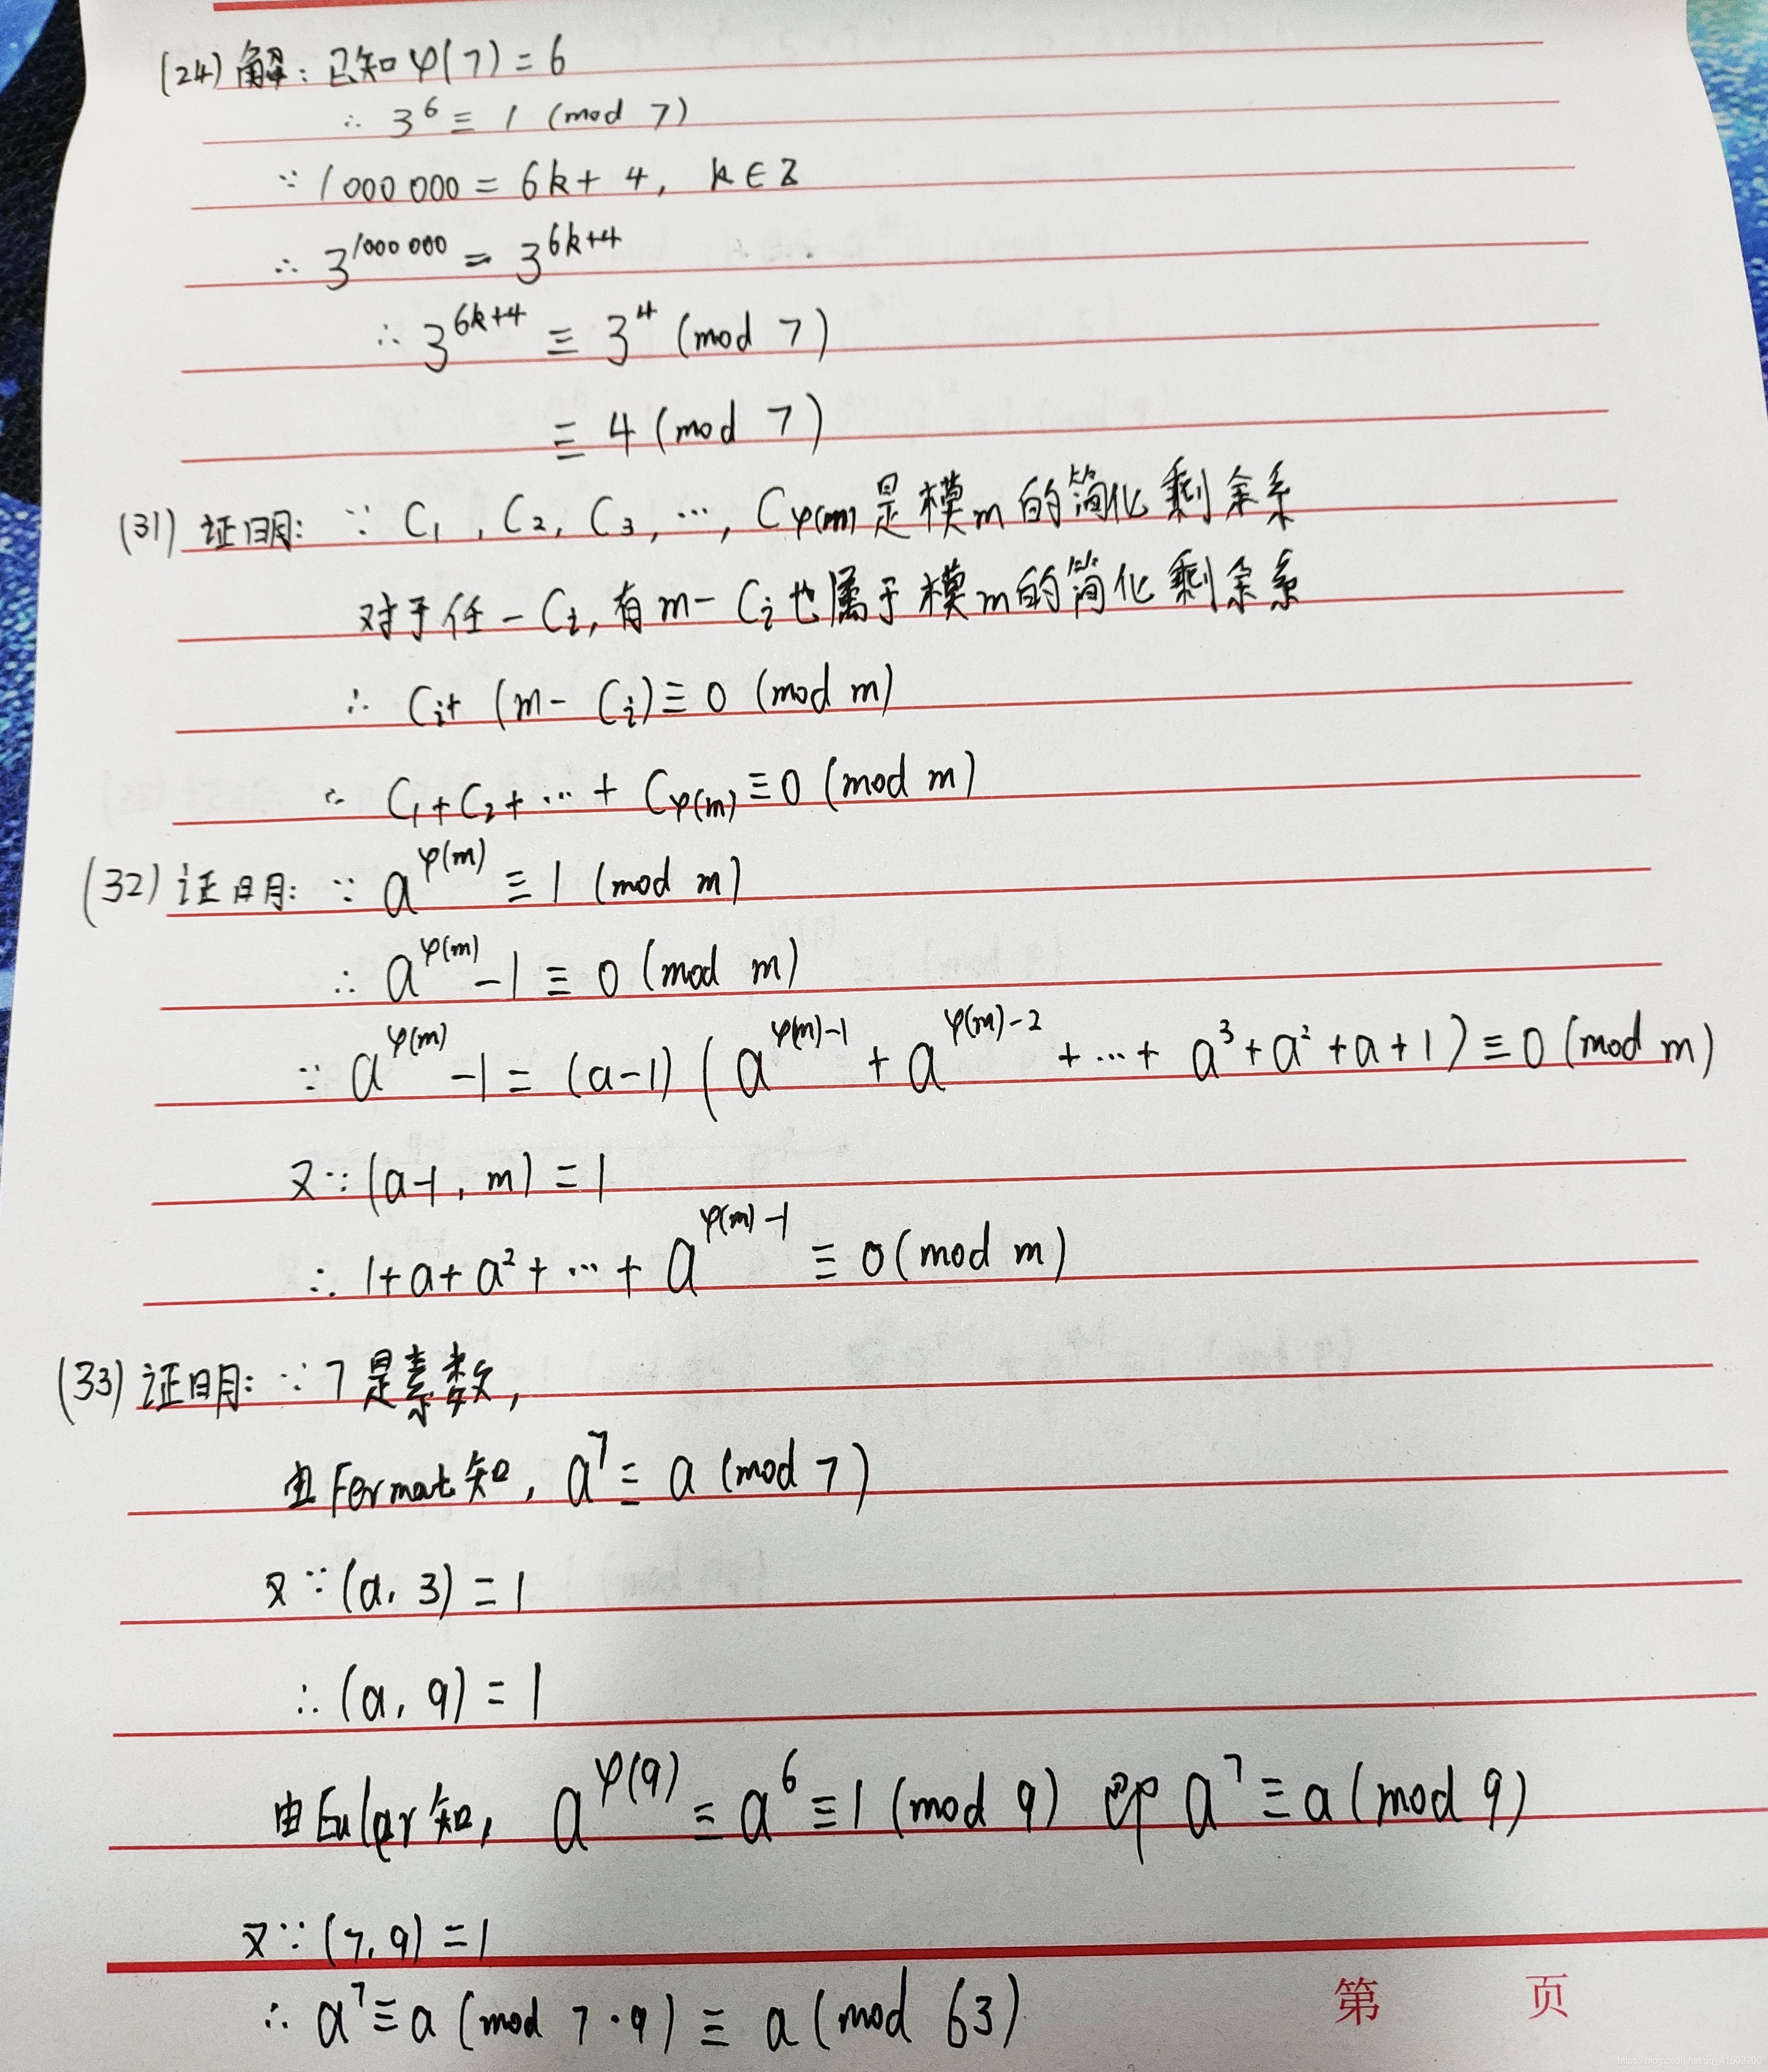 (24) 解: 已知 φ(7) = 6
∴ 3^6 ≡ 1 (mod 7)
∵ 1000 000 = 6k + 4, k ∈ Z
∴ 3^1000 000 = 3^6k+4
∴ 3^6k+4 ≡ 3^4 (mod 7)
≡ 4 (mod 7)
(31) 证明: ∵ C₁, C₂, C₃, ⋯, Cφ(m) 是模m的简化剩余系
对于任一Ci, 有m-Ci也属于模m的简化剩余系
∴ Ci + (m - Ci) ≡ 0 (mod m)
∴ C₁ + C₂ + ⋯ + Cφ(m) ≡ 0 (mod m)
(32) 证明: ∵ a^φ(m) ≡ 1 (mod m)
∴ a^φ(m) - 1 ≡ 0 (mod m)
∵ a^φ(m) - 1 = (a-1) (a^φ(m)-1 + a^φ(m)-2 + ⋯ + a³ + a² + a + 1) ≡ 0 (mod m)
又∵ (a-1, m) = 1
∴ 1 + a + a² + ⋯ + a^φ(m)-1 ≡ 0 (mod m)
(33) 证明: ∵ 7是素数,
由Fermat知, a^7 ≡ a (mod 7)
又∵ (a, 3) = 1
∴ (a, 9) = 1
由Euler知, a^φ(9) ≡ a^6 ≡ 1 (mod 9) 即 a^7 ≡ a (mod 9)
又∵ (7, 9) = 1
∴ a^7 ≡ a (mod 7·9) ≡ a (mod 63)
第 页